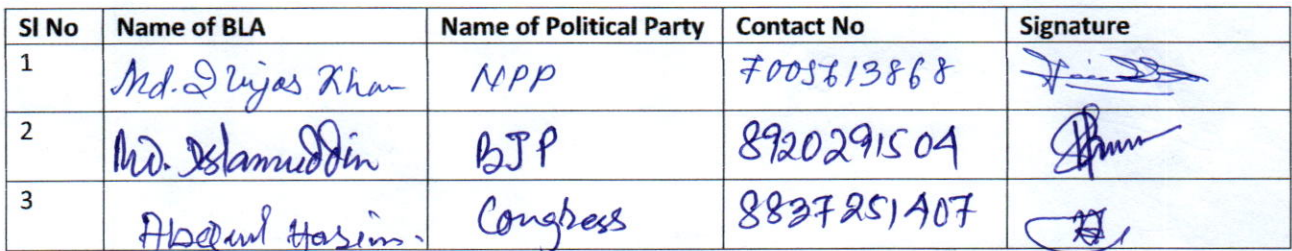 Sl No Name of BLA Name of Political Party Contact No Signature
1 Md. Ilvijas Khan NPP 7005613868
2 Md. Islamuddin BJP 8920291504
3 Hasim. Congress 8837251407